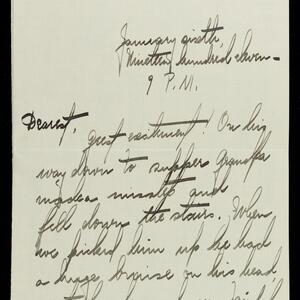 January sixth,
Nineteen hundred eleven-
9 P.M.
Dearest,
Great excitement! On his
way down to supper grandpa
made a misstep and
fell down the stairs. When
we picked him up he had
a huge bruise on his head,